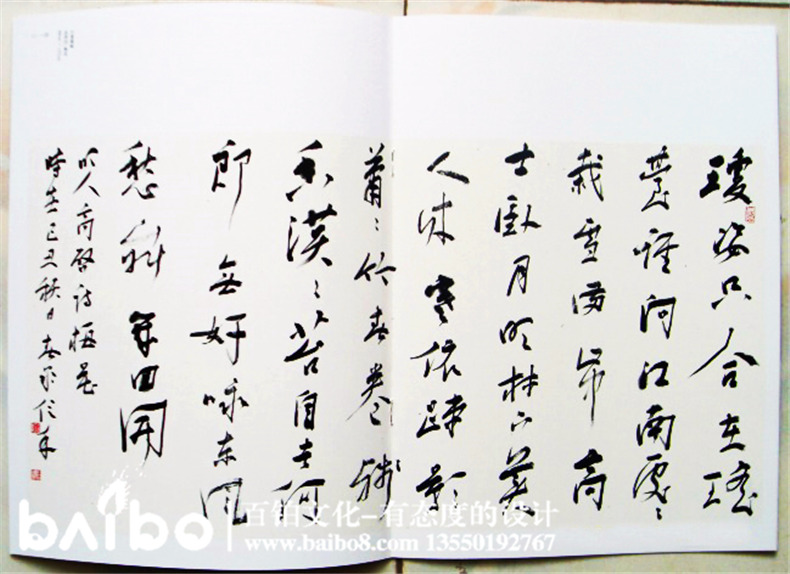 瓊姿只合在瑶
臺誰向江南處々
栽雪滿山中高
士卧月明林下美
人来寒依疎影
蕭々竹春掩残
香漠々苔自去何
郎無好咏东風
愁寂幾回開
明人高啓詩梅花
時在己丑秋日
baibo
百铂文化-有态度的设计
www.baibo8.com 13550192767